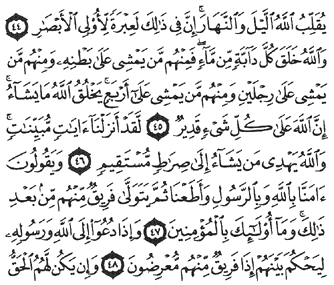 يُقَلِّبُ ٱللَّهُ ٱلَّيْلَ وَٱلنَّهَارَ ۚ إِنَّ فِى ذَٰلِكَ لَعِبْرَةً لِّأُو۟لِى ٱلْأَبْصَٰرِ ٤٤
وَٱللَّهُ خَلَقَ كُلَّ دَآبَّةٍ مِّن مَّآءٍ ۖ فَمِنْهُم مَّن يَمْشِى عَلَىٰ بَطْنِهِۦ وَمِنْهُم مَّن
يَمْشِى عَلَىٰ رِجْلَيْنِ وَمِنْهُم مَّن يَمْشِى عَلَىٰٓ أَرْبَعٍ ۚ يَخْلُقُ ٱللَّهُ مَا يَشَآءُ ۚ
إِنَّ ٱللَّهَ عَلَىٰ كُلِّ شَىْءٍ قَدِيرٌ ٤٥ لَّقَدْ أَنزَلْنَآ ءَايَٰتٍ مُّبَيِّنَٰتٍ ۚ
وَٱللَّهُ يَهْدِى مَن يَشَآءُ إِلَىٰ صِرَٰطٍ مُّسْتَقِيمٍ ٤٦ وَيَقُولُونَ
ءَامَنَّا بِٱللَّهِ وَبِٱلرَّسُولِ وَأَطَعْنَا ثُمَّ يَتَوَلَّىٰ فَرِيقٌ مِّنْهُم مِّنۢ بَعْدِ
ذَٰلِكَ ۚ وَمَآ أُو۟لَٰٓئِكَ بِٱلْمُؤْمِنِينَ ٤٧ وَإِذَا دُعُوٓا۟ إِلَى ٱللَّهِ وَرَسُولِهِۦ
لِيَحْكُمَ بَيْنَهُمْ إِذَا فَرِيقٌ مِّنْهُم مُّعْرِضُونَ ٤٨ وَإِن يَكُن لَّهُمُ ٱلْحَقُّ